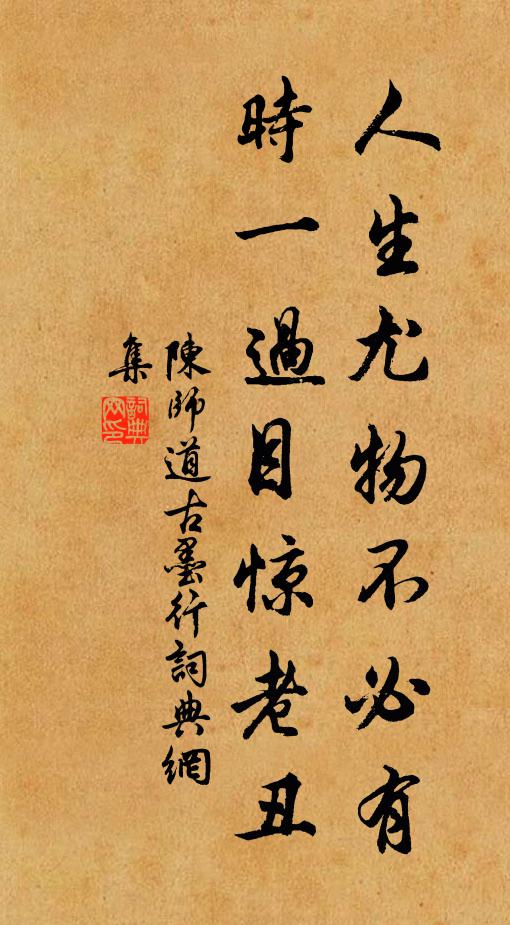 人生尤物不必有
時一過目惊老丑
陳師道古墨行詞典網
集
詞典
网印